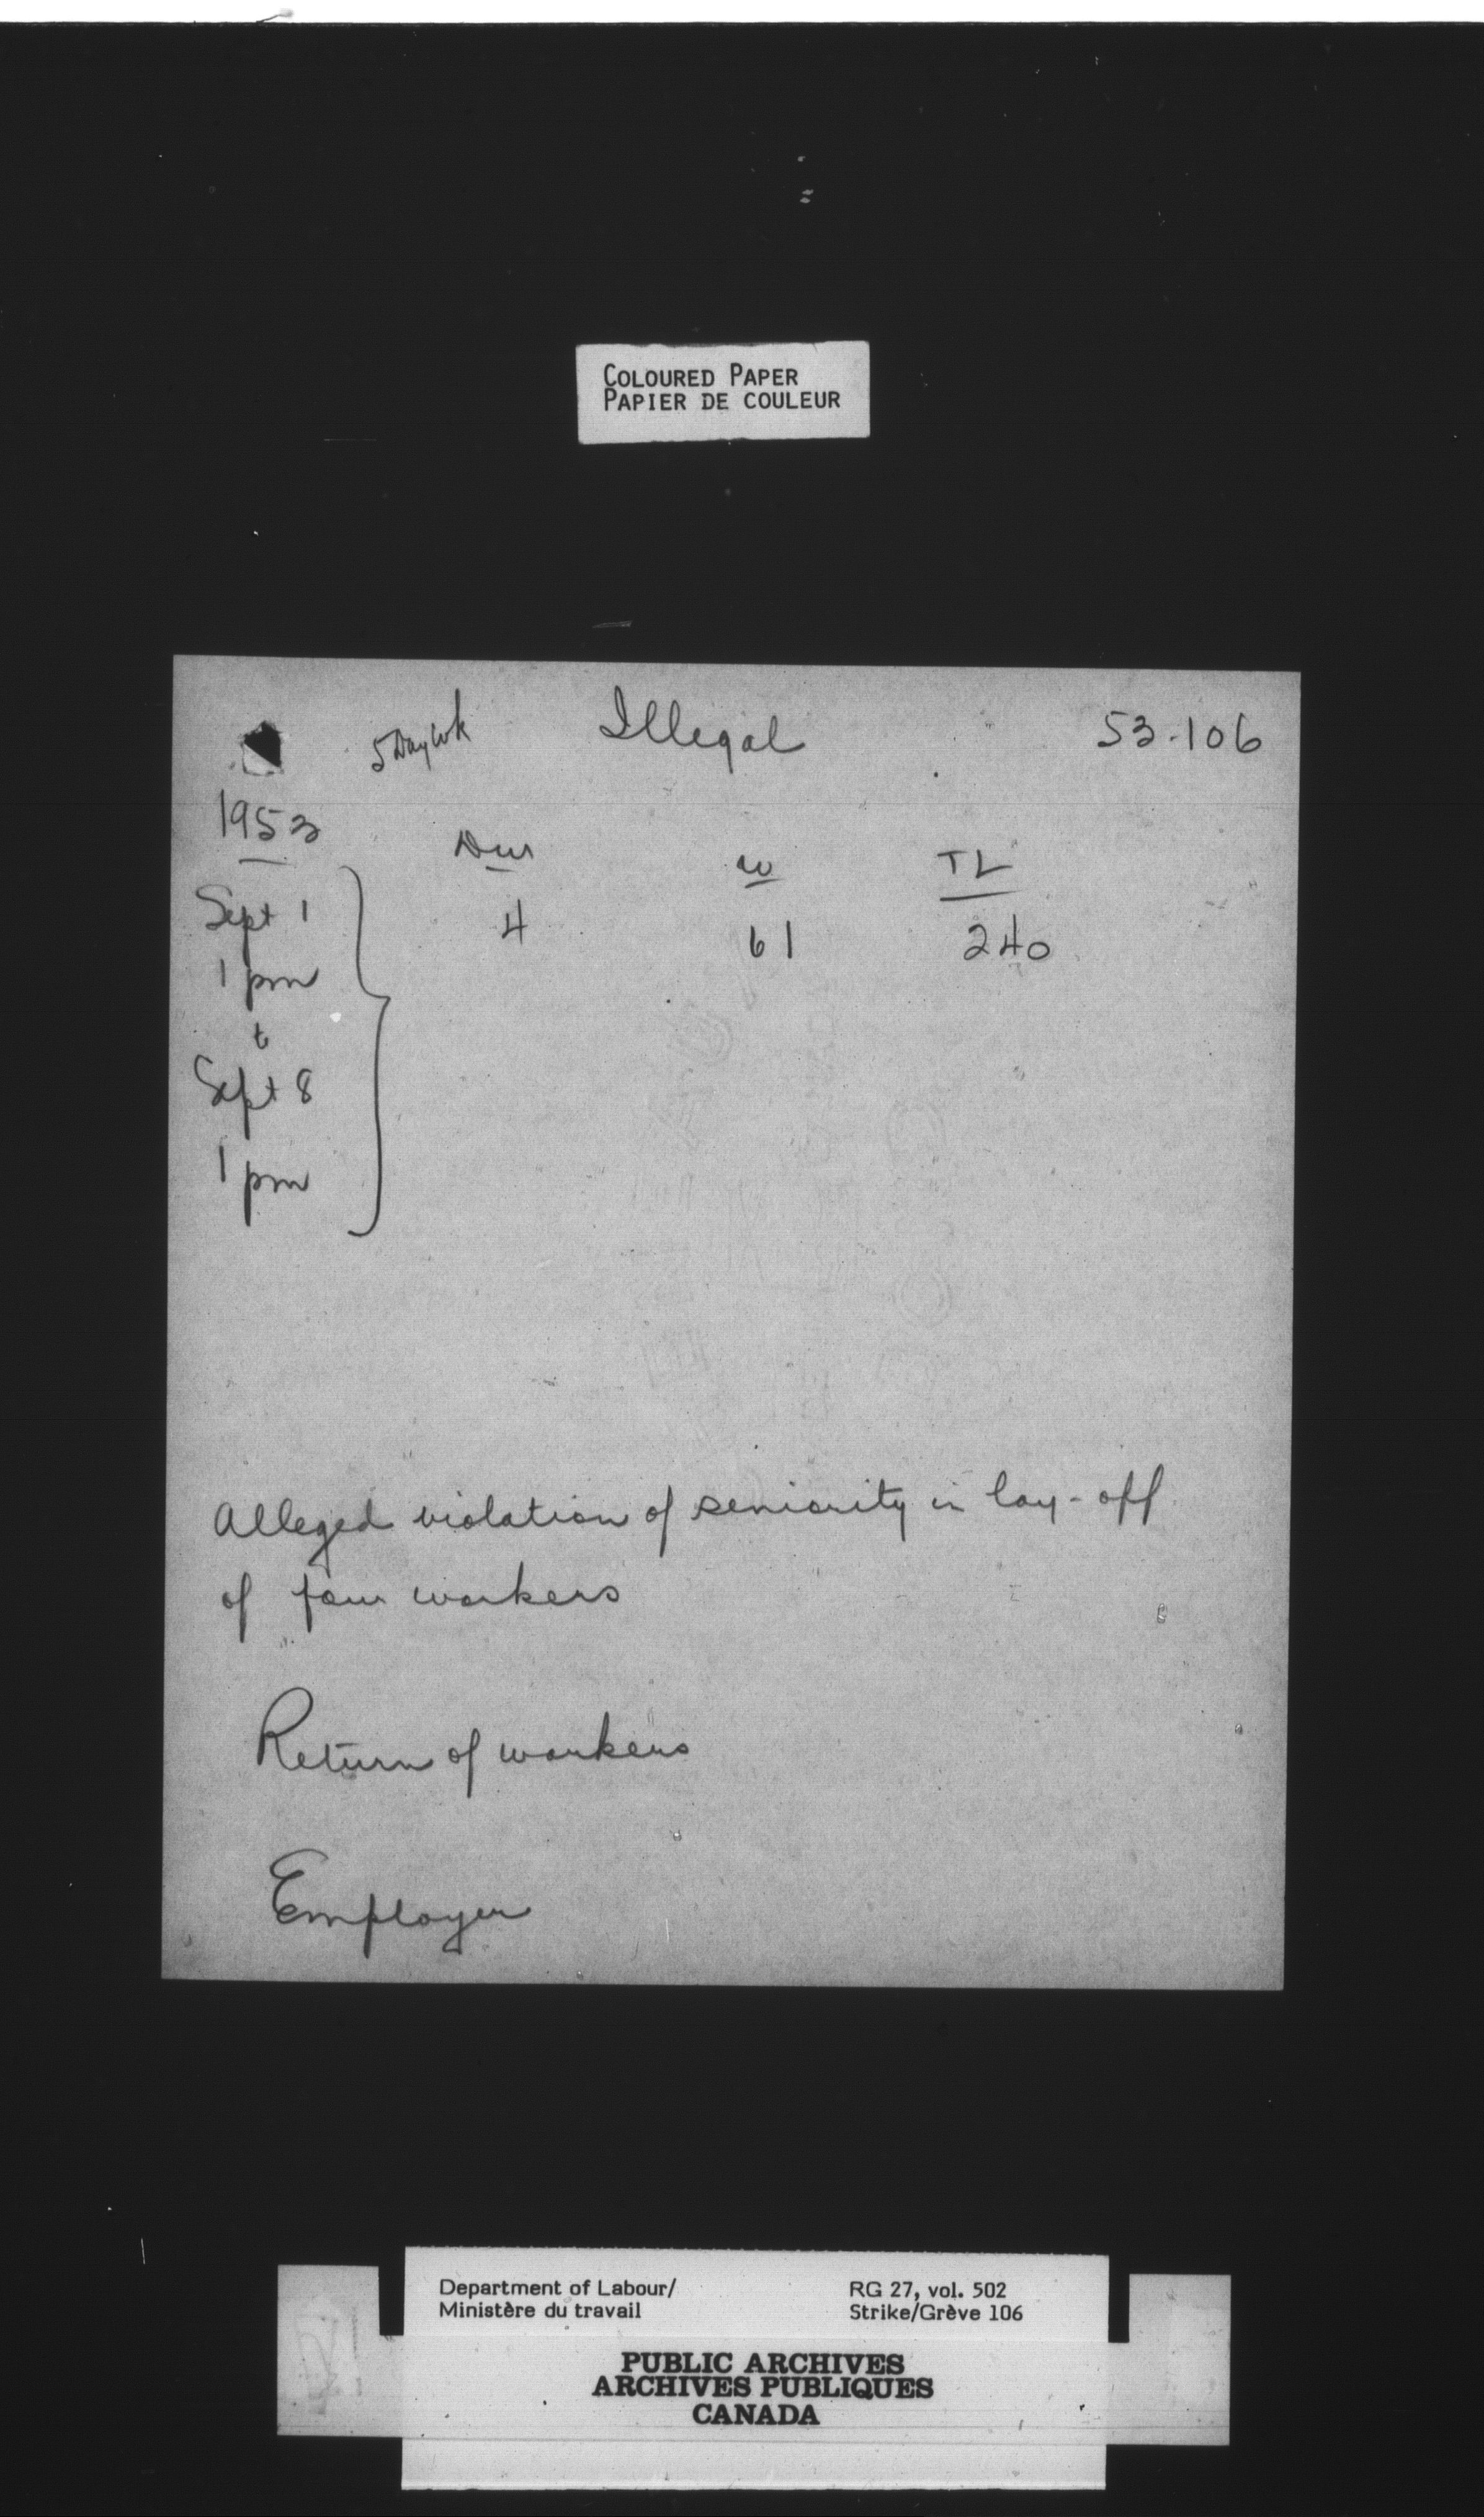 COLOURED PAPER
PAPIER DE COULEUR
5 Day wk Illegal 53-106
1953
Dur w TL
Sept 1 4 61 240
1 pm
to
Sept 8
1 pm
Alleged violation of seniority in lay-off
of four workers
Return of workers
Employer
Department of Labour/ RG 27, vol. 502
Ministère du travail Strike/Grève 106
PUBLIC ARCHIVES
ARCHIVES PUBLIQUES
CANADA